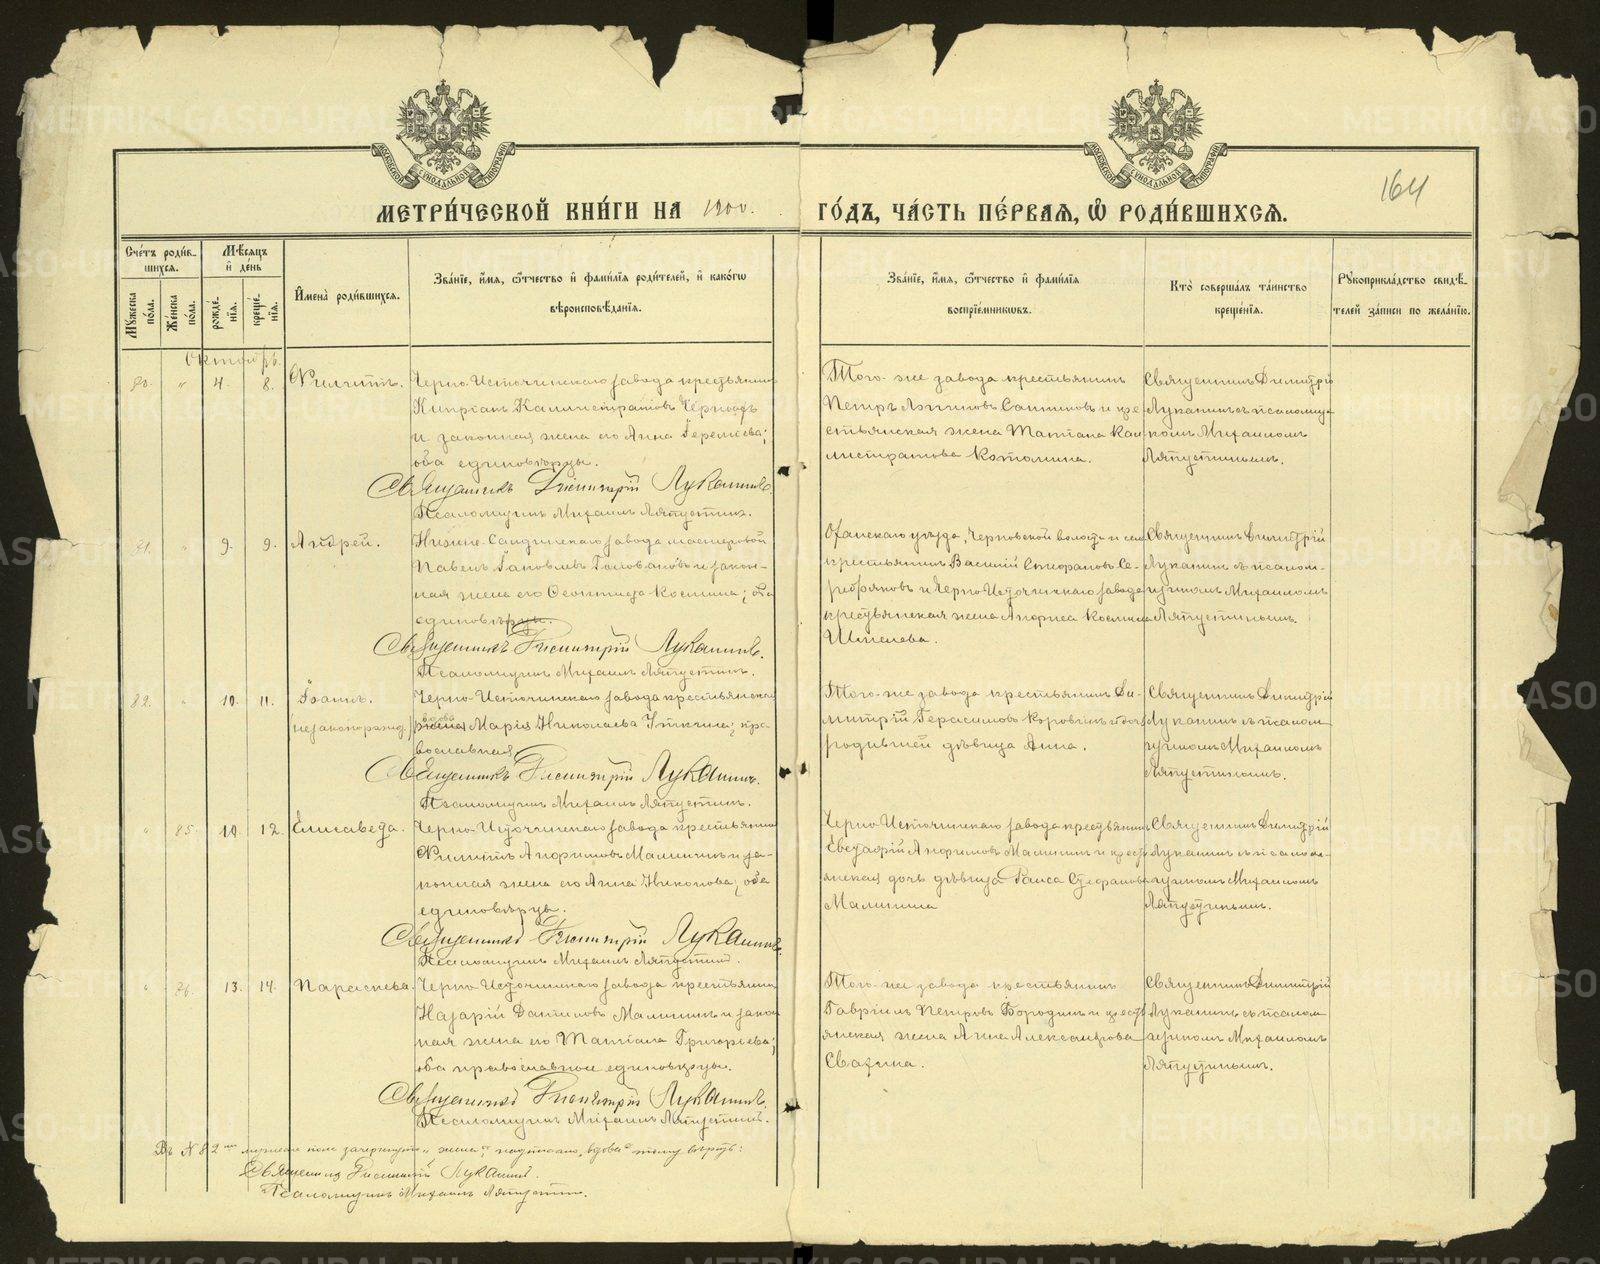 164
МЕТРИ́ЧЕСКОЙ КНИ́ГИ НА 1900. ГО́ДЪ, ЧА́СТЬ ПЕ́РВАѦ, Ѡ҆ РОДИ́ВШИХСѦ.
Сче́тъ роди́в-
шихсѧ.
Мꙋжеска по́ла.
Же́нска по́ла.
Мѣ́сѧцъ
и҆ де́нь
рожде́-
нїѧ.
креще́-
нїѧ.
И҆мена̀ роди́вшихсѧ.
Зва́нїе, и҆́мѧ, ѻ҆́тчество и҆ фами́лїѧ роди́телей, и҆ како́гѡ
вѣроисповѣ́данїѧ.
Зва́нїе, и҆́мѧ, ѻ҆́тчество и҆ фами́лїѧ
воспрїе́мникѡвъ.
Кто̀ соверша́лъ та́инство
креще́нїѧ.
Рꙋкоприкла́дство свидѣ́-
телей за́писи по жела́нїю.
Октябрь.
80. " 4. 8. Филиппъ.
Черно-Источинскаго завода крестьянинъ
Кипріан Каллистратовъ Черноо
и законная жена его Анна Еремеева;
оба единовѣрцы.
Священникъ Димитрій Луканинъ.
Псаломщикъ Михаилъ Ляпустинъ.
Того-же завода крестьянинъ
Петръ Логиновъ и кре
стьянская жена Татіана Кал
листратова Котомина.
Священникъ Димитрій
Луканинъ съ псаломщи
комъ Михаиломъ
Ляпустинымъ.
81. " 9. 9. Андрей.
Нижне-Салдинскаго завода мастеровой
Павелъ Іаковлевъ Головановъ и закон-
ная жена его Феоктиста Космина; оба
единовѣрцы.
Священникъ Димитрій Луканинъ.
Псаломщикъ Михаилъ Ляпустинъ.
Оханскаго уѣзда, Черновской волости и села
крестьянинъ Василій Стефановъ Се-
ребряковъ и Черно-Источинскаго завода
крестьянская жена Анфиса Космина
Шмелева.
Священникъ Димитрій
Луканинъ съ псалом-
щикомъ Михаиломъ
Ляпустинымъ.
82. " 10. 11. Іоаннъ.
(незаконорожд.)
Черно-Источинскаго завода крестьянская
вдова
жена Марія Николаева Уткина; пра
вославная
Священникъ Димитрій Луканинъ.
Псаломщикъ Михаилъ Ляпустинъ.
Того-же завода крестьянинъ Ди-
митрій Герасимовъ Коровинъ и дочь
родившей дѣвица Анна.
Священникъ Димитрій
Луканинъ съ псалом
щикомъ Михаиломъ
Ляпустинымъ.
" 85. 10. 12. Елисавета.
Черно-Источинскаго завода крестьянинъ
Филиппъ Анфимовъ Малининъ и за-
конная жена его Анна Никонова; оба
единовѣрцы.
Священникъ Димитрій Луканинъ.
Псаломщикъ Михаилъ Ляпустинъ.
Черно-Источинскаго завода крестьянинъ
Евстафій Анфимовъ Малининъ и крест
янская дочь дѣвица Раиса Стефанова
Малинина
Священникъ Димитрій
Луканинъ съ псалом-
щикомъ Михаиломъ
Ляпустинымъ.
" 86. 13. 14. Параскева.
Черно-Источинскаго завода крестьянинъ
Назарій Даниловъ Малининъ и закон
ная жена его Татіана Григорьева;
оба православные единовѣрцы.
Священникъ Димитрій Луканинъ.
Псаломщикъ Михаилъ Ляпустинъ.
Того-же завода крестьянинъ
Гавріилъ Петровъ Бородинъ и крест
янская жена Анна Александрова
Свахина.
Священникъ Димитрій
Луканинъ съ псалом
щикомъ Михаиломъ
Ляпустинымъ.
Въ № 82мъ мужеска пола зачеркнуто "жена", надписано "вдова" тому вѣрить:
Священникъ Димитрій Луканинъ.
Псаломщикъ Михаилъ Ляпустинъ.
METRIKI.GASO-URAL.RU